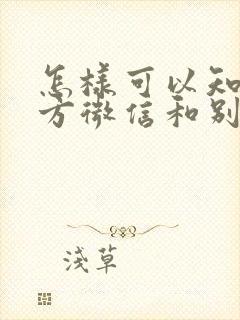 怎樣可以知
方微信和別
淺草